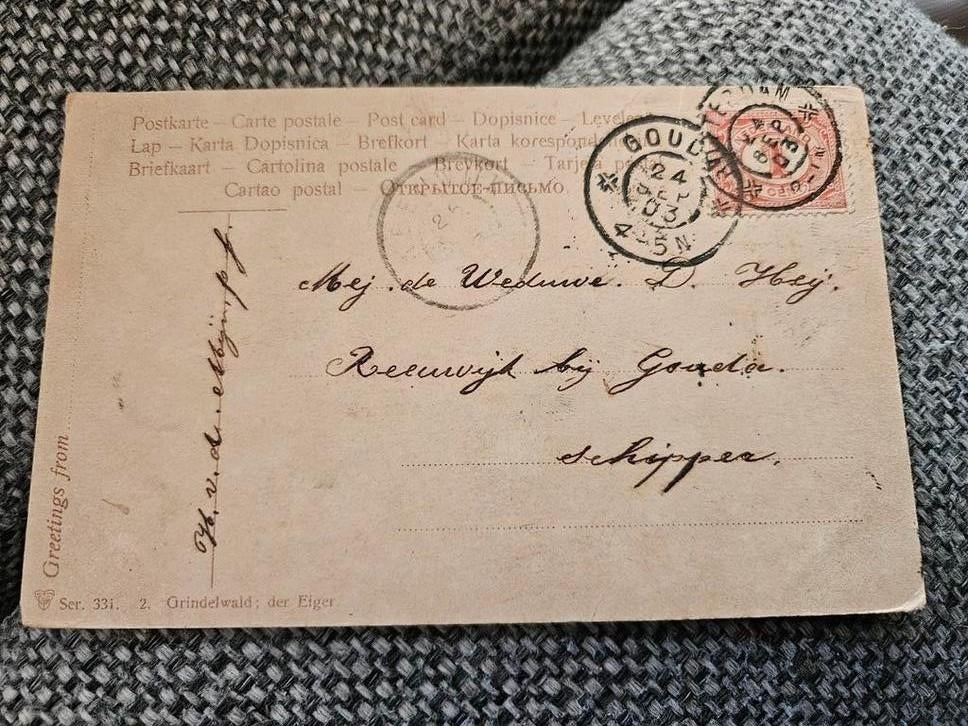 Postkarte – Carte postale – Post card – Dopisnice – Levelez
Lap – Karta Dopisnica – Brefkort – Karta korespond
Briefkaart – Cartolina postale – Brevkort – Tarjeta postal
Cartao postal – Открытое письмо
GOUDA
24 SEP 03
4-5N
TERDAM
SEP 03
Mej. de Weduwe. D. Heij.
Reeuwijk bij Gouda.
schipper.
v. d.
Greetings from
Ser. 331. 2. Grindelwald; der Eiger